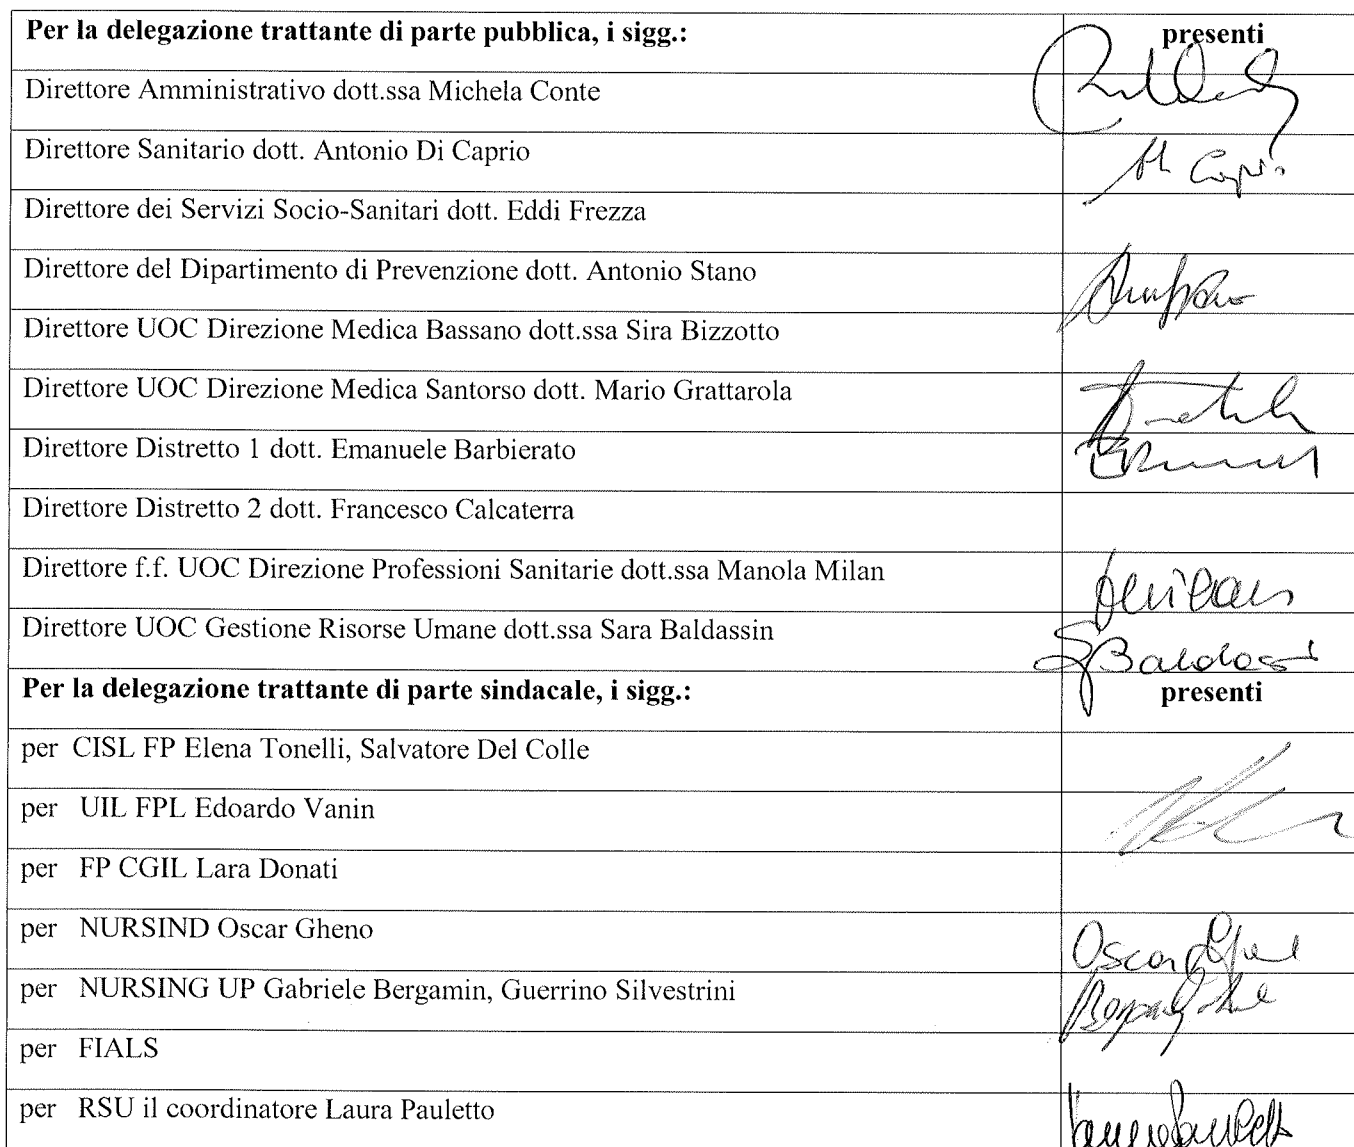 Per la delegazione trattante di parte pubblica, i sigg.: presenti
Direttore Amministrativo dott.ssa Michela Conte
Direttore Sanitario dott. Antonio Di Caprio
Direttore dei Servizi Socio-Sanitari dott. Eddi Frezza
Direttore del Dipartimento di Prevenzione dott. Antonio Stano
Direttore UOC Direzione Medica Bassano dott.ssa Sira Bizzotto
Direttore UOC Direzione Medica Santorso dott. Mario Grattarola
Direttore Distretto 1 dott. Emanuele Barbierato
Direttore Distretto 2 dott. Francesco Calcaterra
Direttore f.f. UOC Direzione Professioni Sanitarie dott.ssa Manola Milan
Direttore UOC Gestione Risorse Umane dott.ssa Sara Baldassin
Per la delegazione trattante di parte sindacale, i sigg.: presenti
per CISL FP Elena Tonelli, Salvatore Del Colle
per UIL FPL Edoardo Vanin
per FP CGIL Lara Donati
per NURSIND Oscar Gheno Oscar
per NURSING UP Gabriele Bergamin, Guerrino Silvestrini
per FIALS
per RSU il coordinatore Laura Pauletto